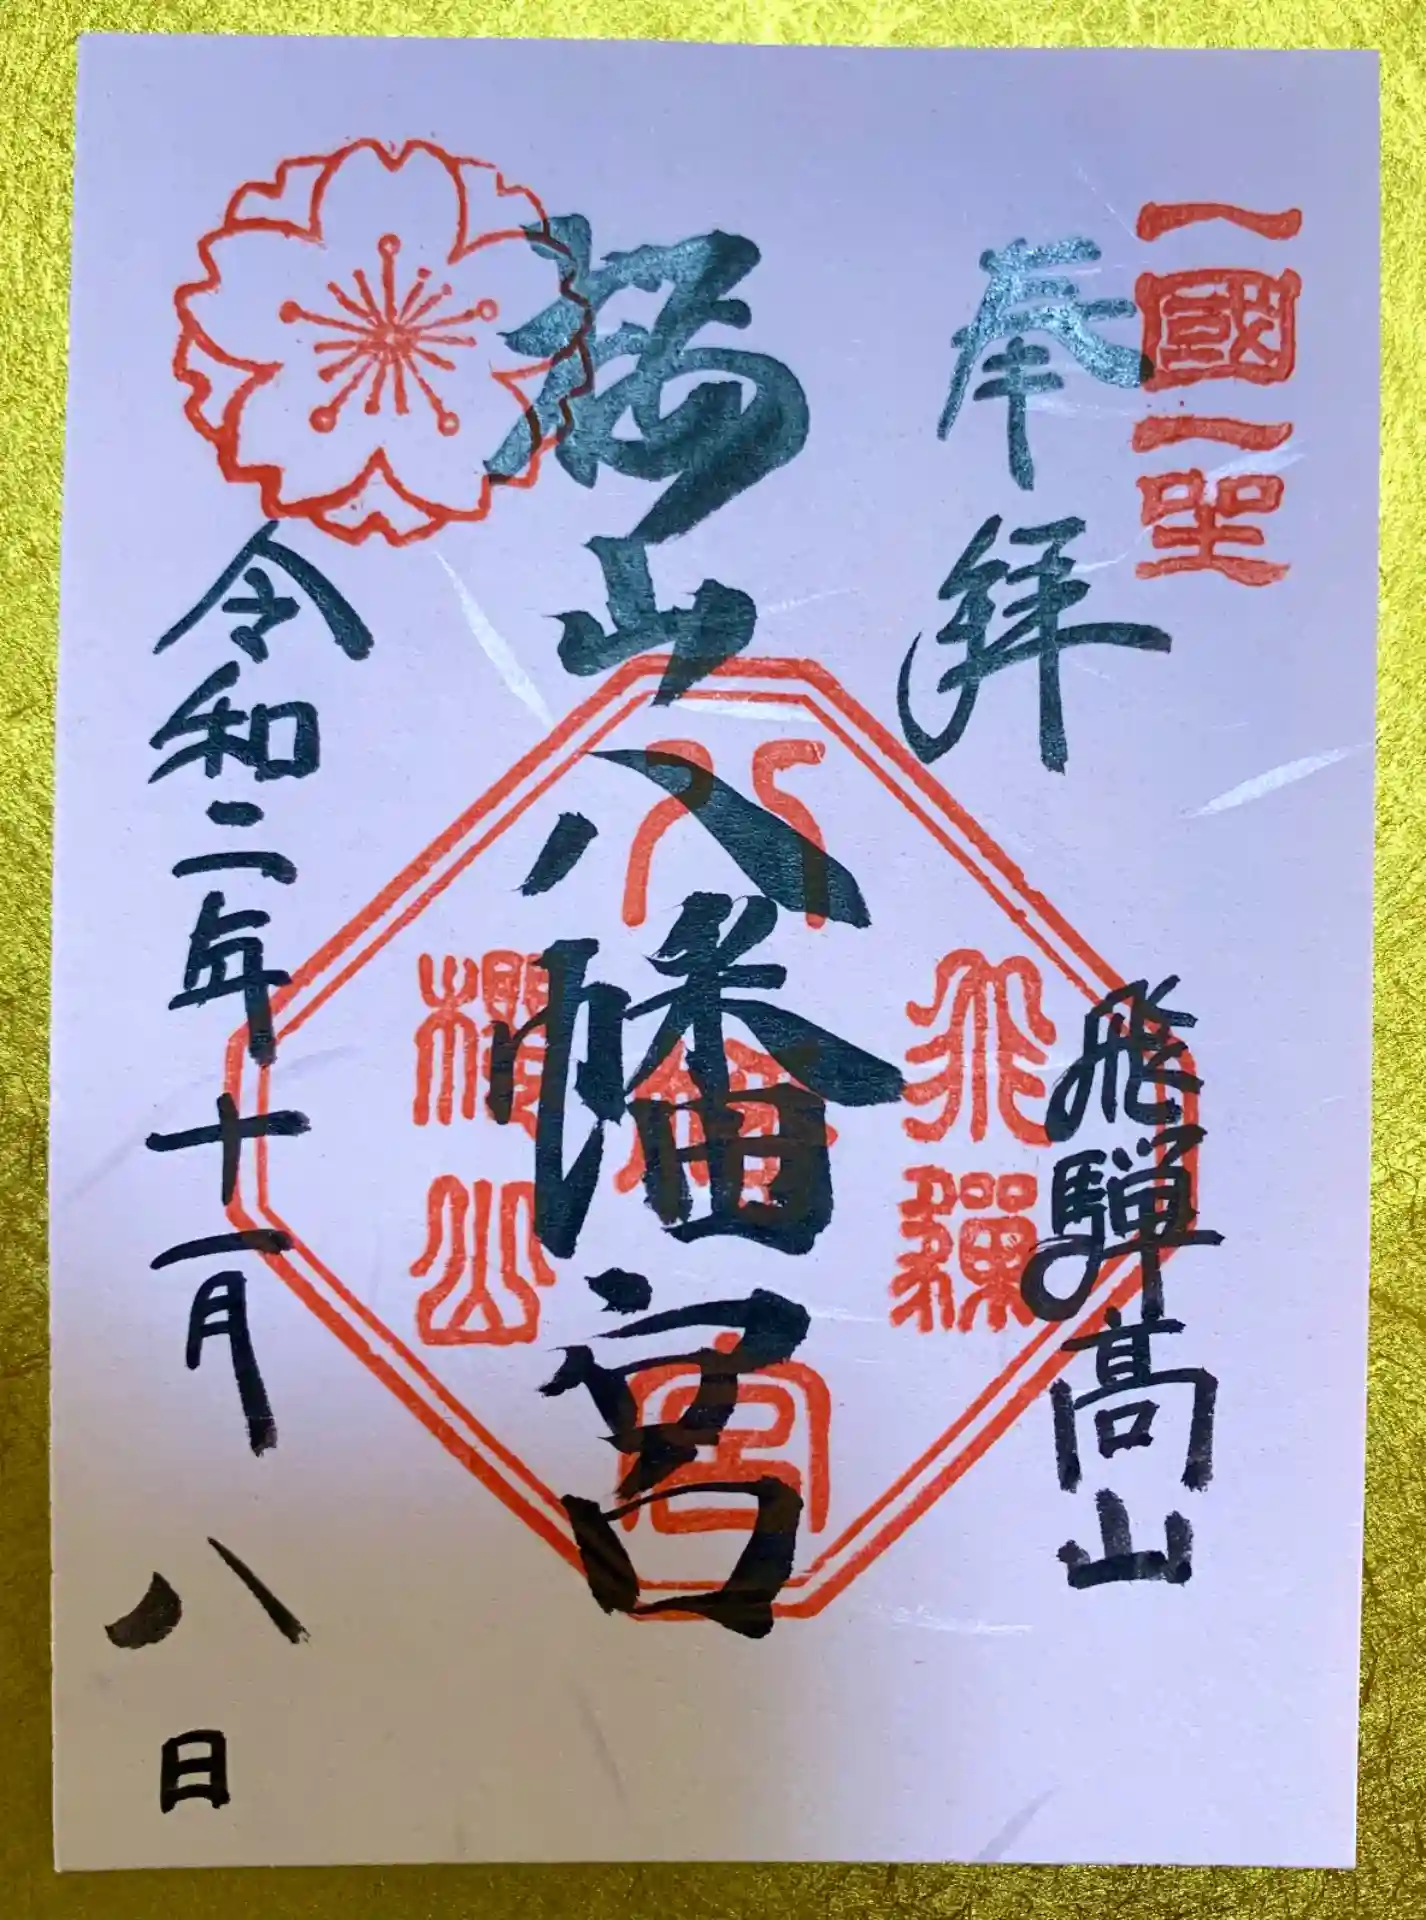 一國一聖
奉拝
飛騨高山
桜山八幡宮
飛騨
八幡宮
櫻山
令和二年十一月八日